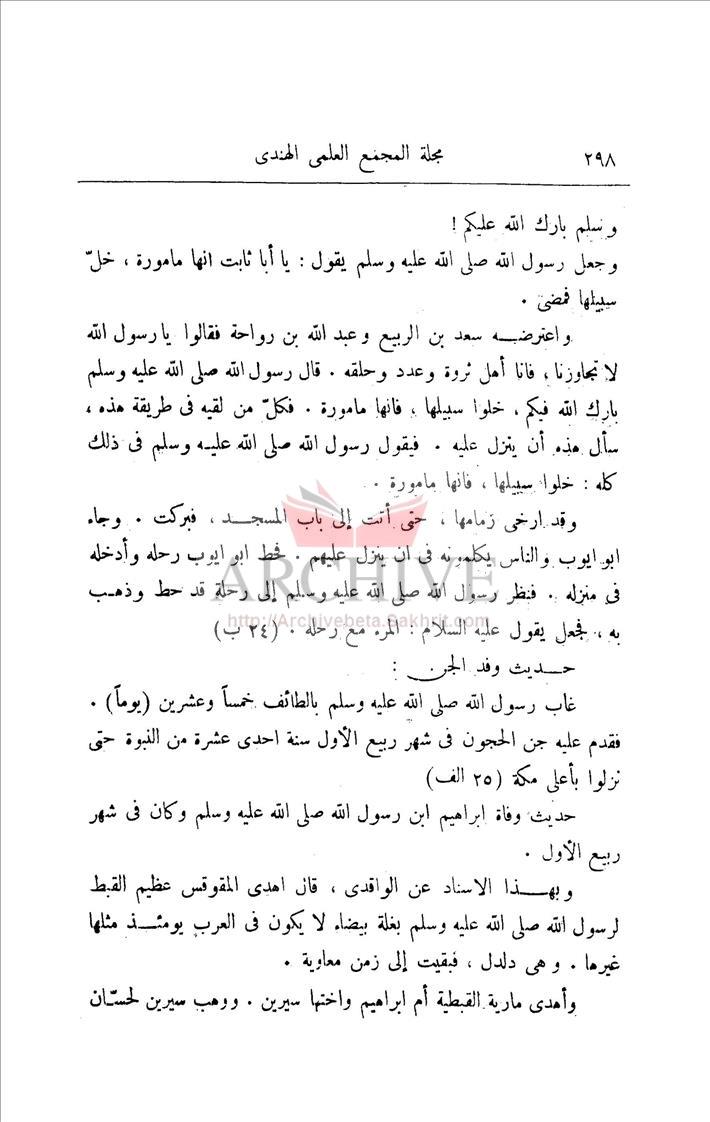 ٢٩٨ مجلة المجمع العلمى الهندى
وسلم بارك الله عليكم !
وجعل رسول الله صلى الله عليه وسلم يقول : يا أبا ثابت انها مامورة ، خلّ
سبيلها فمضى .
واعترضه سعد بن الربيع وعبد الله بن رواحة فقالوا يا رسول الله
لا تجاوزنا ، فانا أهل ثروة وعدد وحلقه . قال رسول الله صلى الله عليه وسلم
بارك الله فيكم ، خلوا سبيلها ، فانها مامورة . فكلّ من لقيه فى طريقة هذه ،
سأل هذه أن ينزل عليه . فيقول رسول الله صلى الله عليه وسلم فى ذلك
كله : خلوا سبيلها ، فانها مامورة .
وقد ارخى زمامها ، حتى أتت إلى باب المسجد ، فبركت . وجاء
ابو ايوب والناس يكلمونه فى ان ينزل عليهم . فحط ابو ايوب رحله وأدخله
ARCHIVE
فى منزله . فنظر رسول الله صلى الله عليه وسلم إلى رحلة قد حط وذهب
http://Archivebeta.Sakhrit.com
به ، فجعل يقول عليه السلام : المرء مع رحله . (٢٤ ب)
حديث وفد الجن :
غاب رسول الله صلى الله عليه وسلم بالطائف خمساً وعشرين (يوماً) .
فقدم عليه جن الحجون فى شهر ربيع الأول سنة احدى عشرة من النبوة حتى
نزلوا بأعلى مكة (٢٥ الف)
حديث وفاة ابراهيم ابن رسول الله صلى الله عليه وسلم وكان فى شهر
ربيع الأول .
وبهذا الاسناد عن الواقدى ، قال اهدى المقوقس عظيم القبط
لرسول الله صلى الله عليه وسلم بغلة بيضاء لا يكون فى العرب يومئذ مثلها
غيرها . وهى دلدل ، فبقيت إلى زمن معاوية .
وأهدى مارية القبطية أم ابراهيم واختها سيرين . ووهب سيرين لحسّان